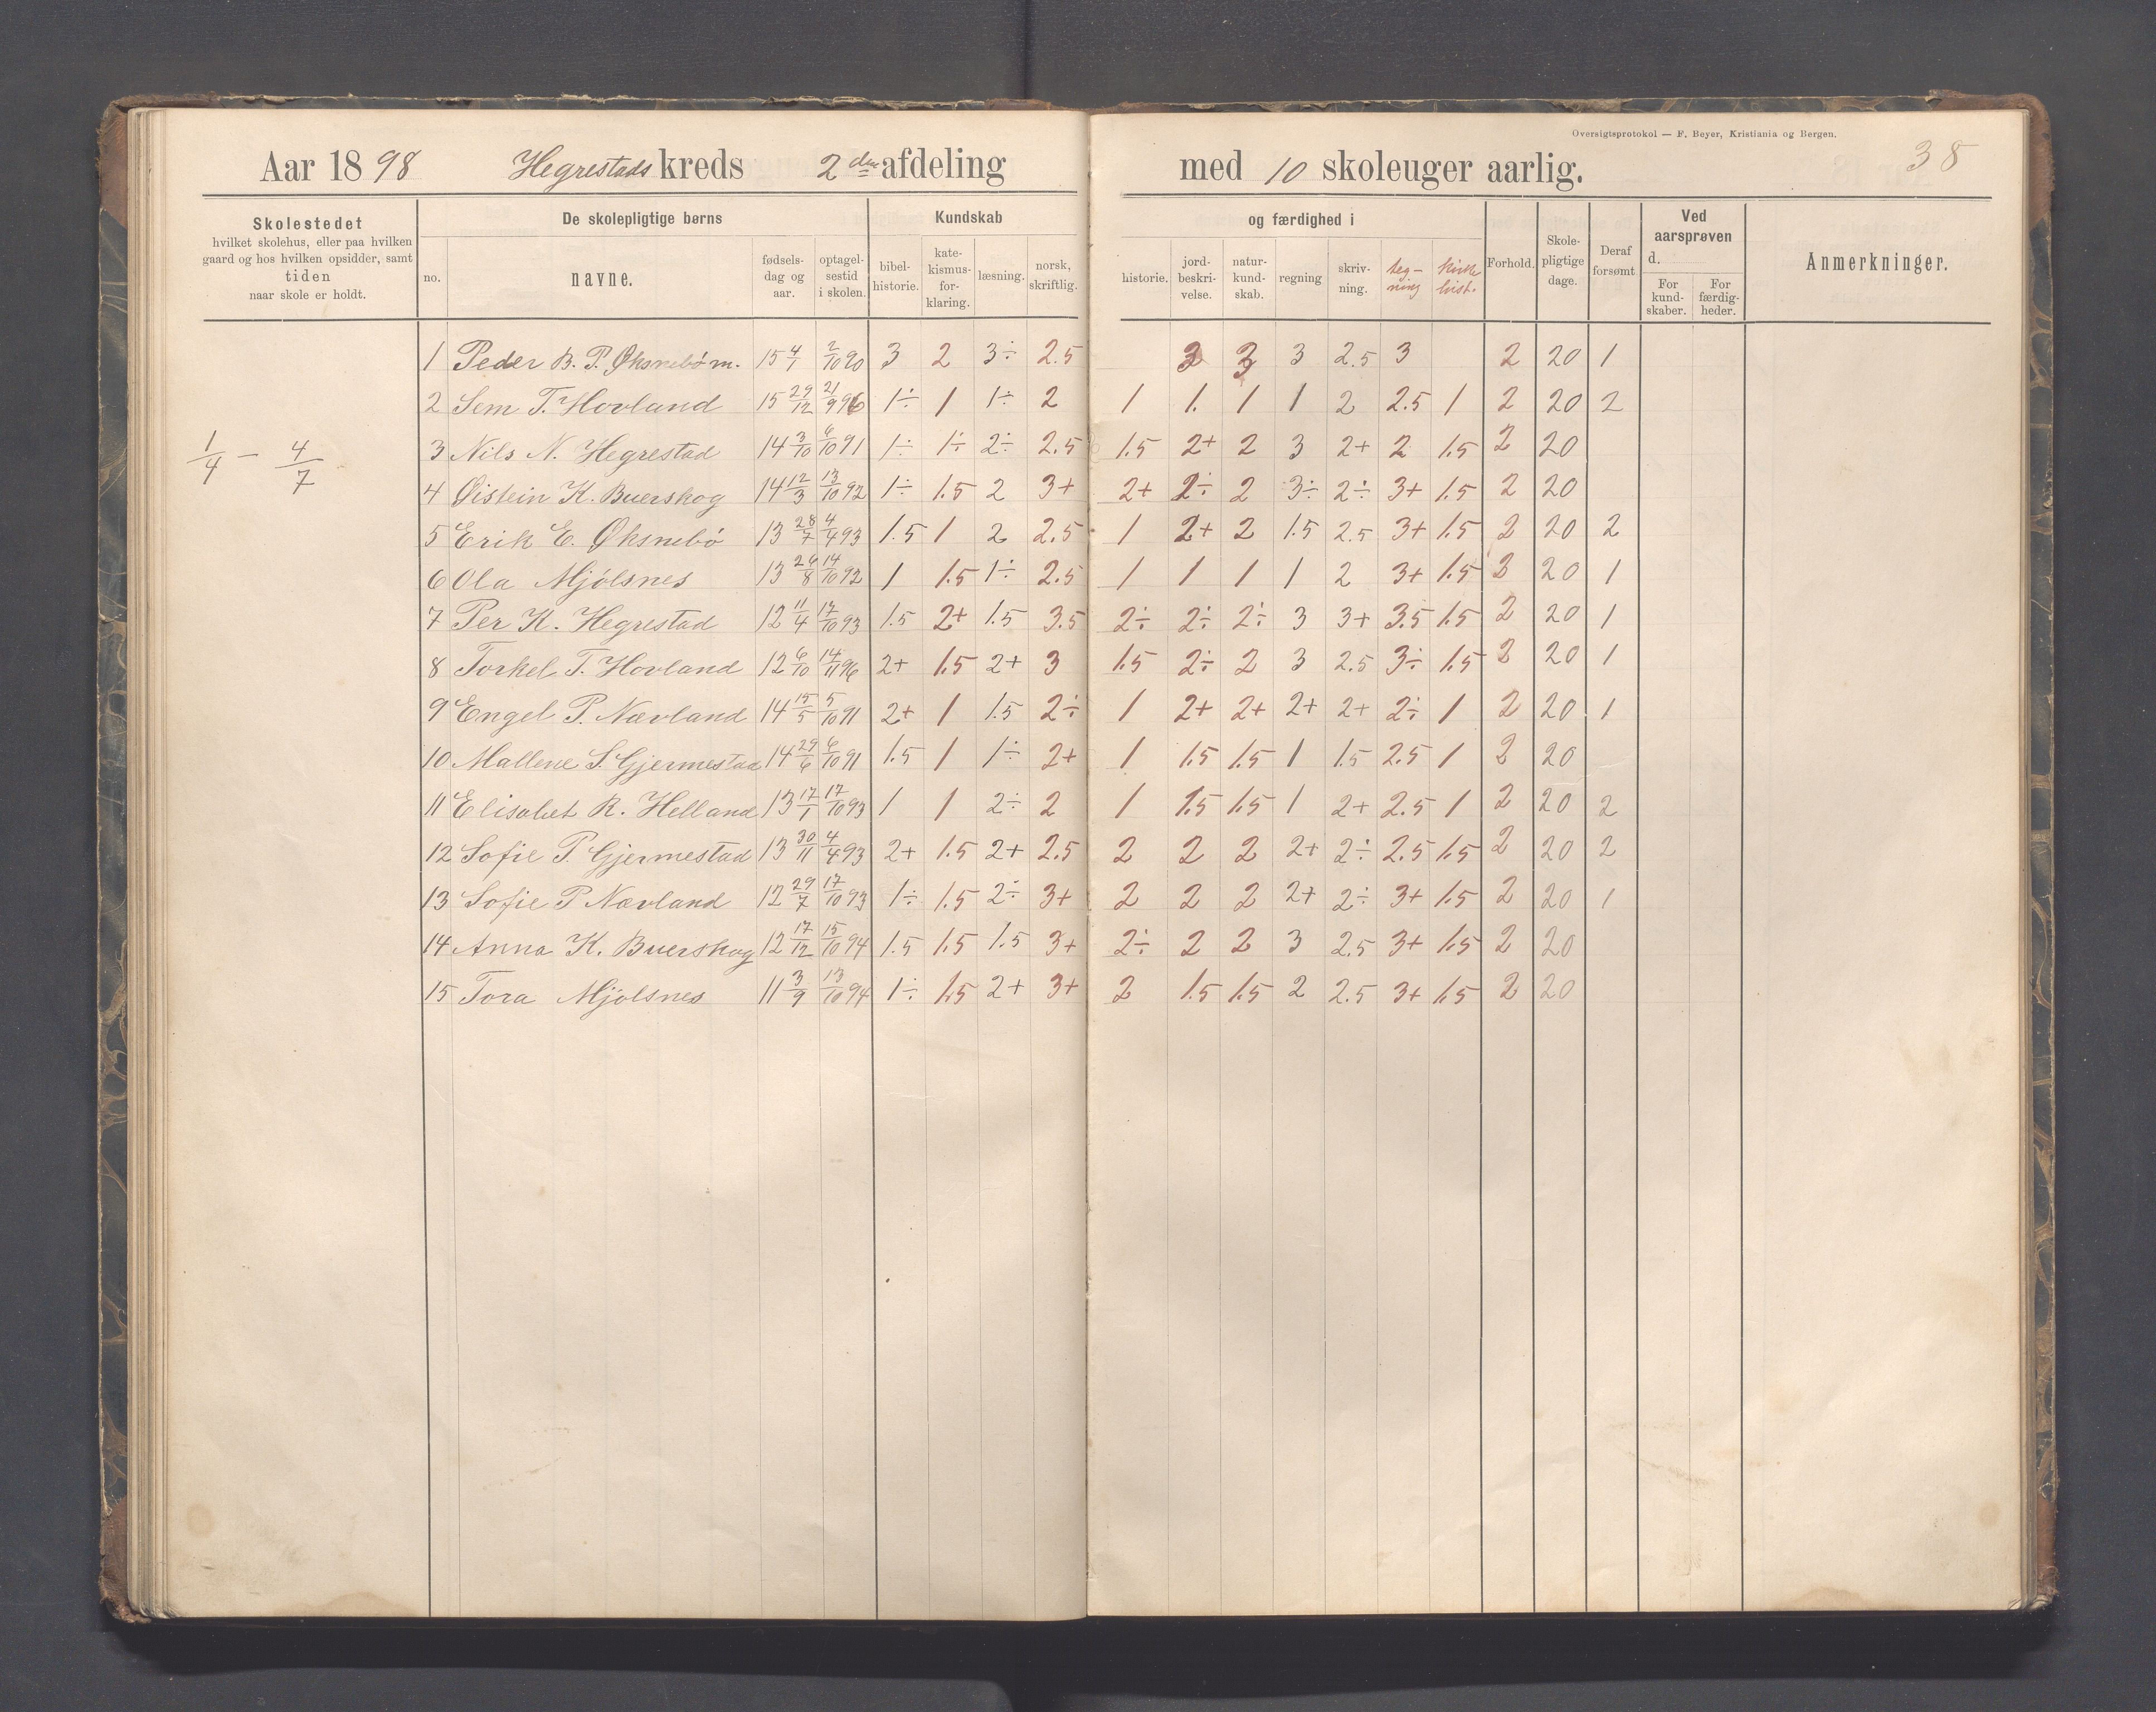 Oversigtsprotokol — F. Beyer, Kristiania og Bergen.
38
Aar 1898 Hegrestads kreds 2den afdeling med 10 skoleuger aarlig.
Skolestedet hvilket skolehus, eller paa hvilken gaard og hos hvilken opsidder, samt tiden naar skole er holdt.
De skolepligtige børns
Kundskab og færdighed i
no. navne. fødsels-dag og aar. optagel-sestid i skolen. bibel-historie. kate-kismus-for-klaring. læsning. norsk, skriftlig. historie. jord-beskri-velse. natur-kund-skab. regning skriv-ning. teg-ning kirke hist. Forhold. Skole-pligtige dage. Deraf forsømt
Ved aarsprøven d.
For kund-skaber. For færdig-heder.
Anmerkninger.
1/4 – 4/7
1 Peder B. P. Øksnebø m. 15 4/1 2/10 90 3 2 3÷ 2.5 3 3 3 2.5 3 2 20 1
2 Sem T. Hovland 15 29/12 21/9 96 1÷ 1 1÷ 2 1 1. 1 1 2 2.5 1 2 20 2
3 Nils N. Hegrestad 14 3/10 6/10 91 1÷ 1÷ 2÷ 2.5 1.5 2+ 2 3 2+ 2 1.5 2 20
4 Øistein K. Buerskog 14 12/3 13/10 92 1÷ 1.5 2 3+ 2+ 2÷ 2 3÷ 2÷ 3+ 1.5 2 20
5 Erik E. Øksnebø 13 28/7 4/4 93 1.5 1 2 2.5 1 2+ 2 1.5 2.5 3+ 1.5 2 20 2
6 Ola Mjølsnes 13 26/8 14/10 92 1 1.5 1÷ 2.5 1 1 1 1 2 3+ 1.5 2 20 1
7 Per K. Hegrestad 12 11/4 17/10 93 1.5 2+ 1.5 3.5 2÷ 2÷ 2÷ 3 3+ 3.5 1.5 2 20 1
8 Torkel T. Hovland 12 6/10 14/11 96 2+ 1.5 2+ 3 1.5 2÷ 2 3 2.5 3÷ 1.5 2 20 1
9 Engel P. Nævland 14 15/5 5/10 91 2+ 1 1.5 2÷ 1 2+ 2+ 2+ 2+ 2÷ 1 2 20 1
10 Mallene S. Gjermestad 14 29/6 6/10 91 1.5 1 1÷ 2+ 1 1.5 1.5 1 1.5 2.5 1 2 20
11 Elisabet R. Helland 13 17/1 17/10 93 1 1 2÷ 2 1 1.5 1.5 1 2+ 2.5 1 2 20 2
12 Sofie P. Gjermestad 13 30/11 4/4 93 2+ 1.5 2+ 2.5 2 2 2 2+ 2÷ 2.5 1.5 2 20 2
13 Sofie P Nævland 12 29/7 17/10 93 1÷ 1.5 2÷ 3+ 2 2 2 2+ 2÷ 3+ 1.5 2 20 1
14 Anna K. Buerskog 12 17/12 15/10 94 1.5 1.5 1.5 3+ 2÷ 2 2 3 2.5 3+ 1.5 2 20
15 Tora Mjølsnes 11 3/9 13/10 94 1÷ 1.5 2+ 3+ 2 1.5 1.5 2 2.5 3+ 1.5 2 20